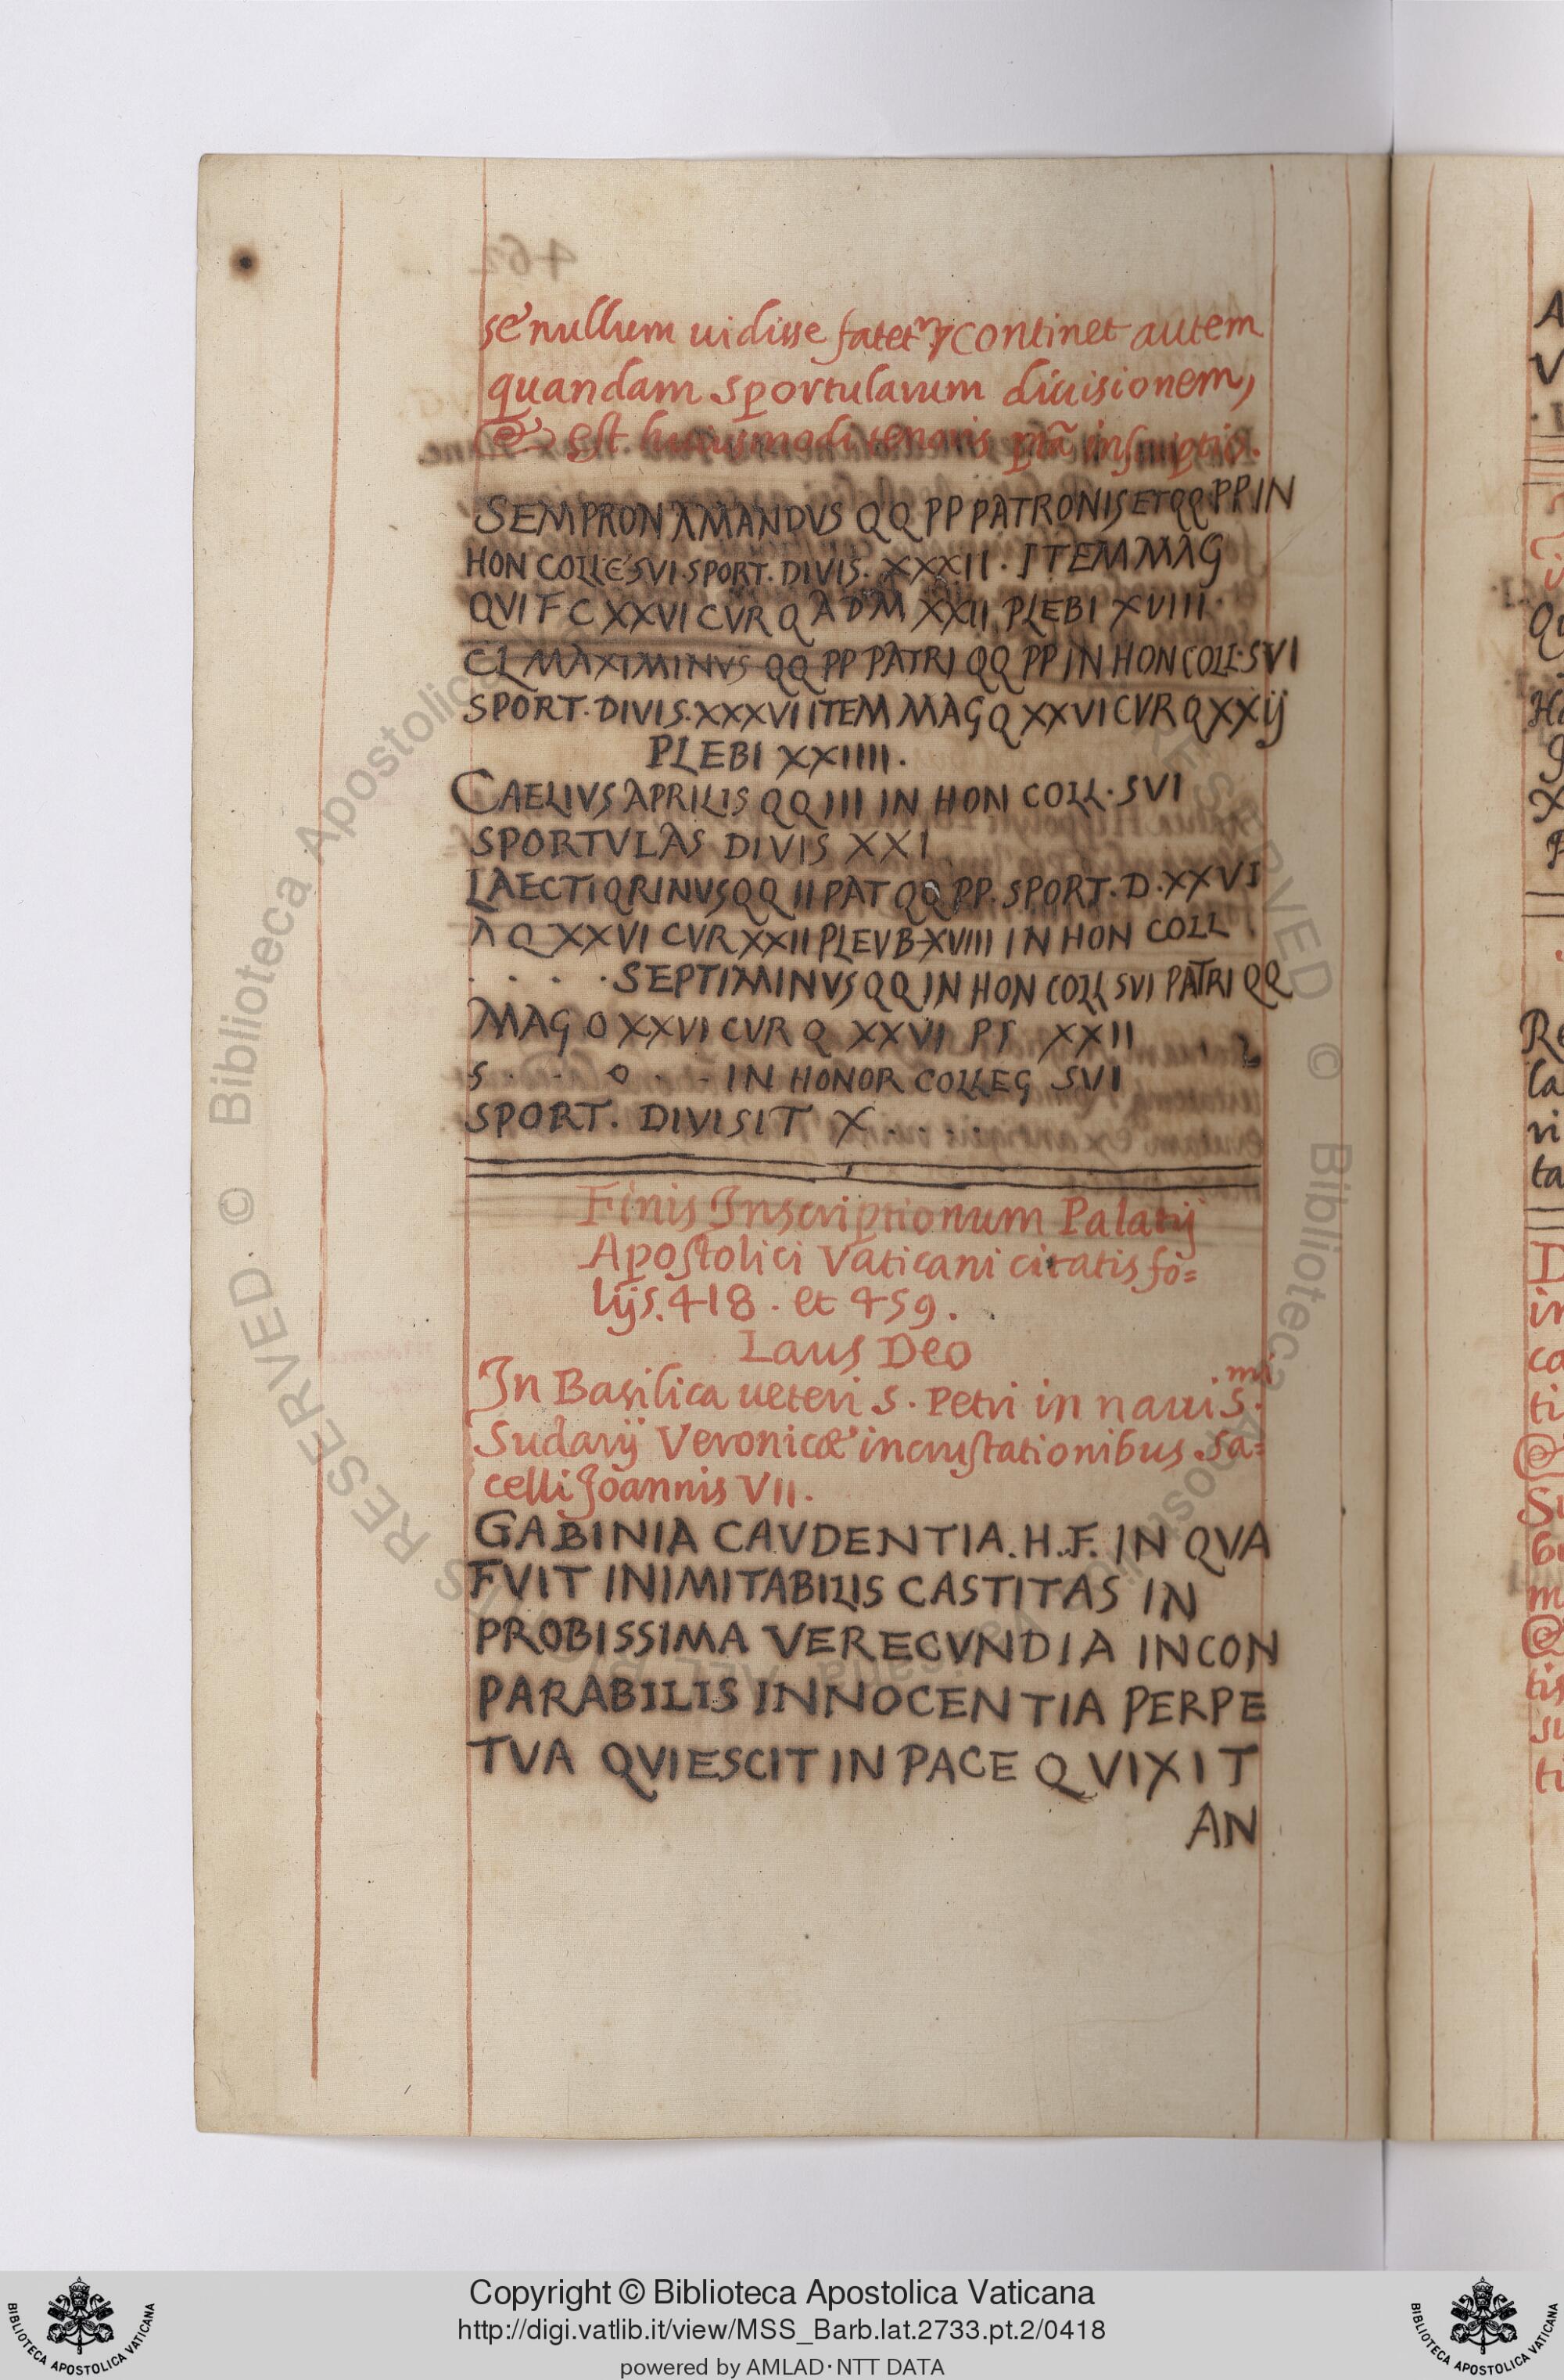 se nullum uidisse fatet continet autem
quandam sportularum diuisionem,
& est huiusmodi tenoris inscriptio.
SEMPRON AMANDVS QQ PP PATRONIS ET QQ PP IN
HON COLLE SVI SPORT. DIVIS. XXXII. ITEM MAG
QVI F C XXVI CVR Q ADM XXII PLEBI XVIII.
CL MAXIMINVS QQ PP PATRI QQ PP IN HON COLL. SVI
SPORT. DIVIS. XXXVI ITEM MAG Q XXVI CVR Q XXij
PLEBI XXIIII.
CAELIVS APRILIS QQ III IN HON COLL. SVI
SPORTVLAS DIVIS XXI
LAECTIQRINVS QQ II PAT QQ PP. SPORT. D. XXVI
A Q XXVI CVR XXII PLEVB XVIIII IN HON COLL
. . . . SEPTIMINVS QQ IN HON COLL SVI PATRI QQ
MAG O XXVI CVR Q XXVI PI XXII
S . . o . . IN HONOR COLLEG SVI
SPORT. DIVISIT X . . . .
Finis Inscriptionum Palatij
Apostolici Vaticani citatis fo=
lijs. 418. et 459.
Laus Deo
In Basilica ueteri S. Petri in naui S.mi
Sudarij Veronicæ incrustationibus sa=
celli Joannis VII.
GABINIA CAVDENTIA. H. F. IN QVA
FVIT INIMITABILIS CASTITAS IN
PROBISSIMA VERECVNDIA INCON
PARABILIS INNOCENTIA PERPE
TVA QVIESCIT IN PACE Q VIXIT
AN
Copyright © Biblioteca Apostolica Vaticana
http://digi.vatlib.it/view/MSS_Barb.lat.2733.pt.2/0418
powered by AMLAD·NTT DATA
BIBLIOTECA APOSTOLICA VATICANA
BIBLIOTECA APOSTOLICA VATICANA